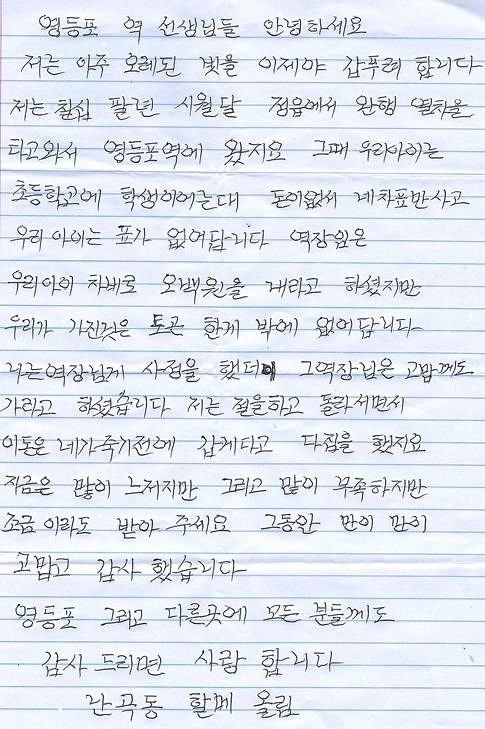 영등포 역 선생님들 안녕하세요
저는 아주 오레된 빛을 이제야 갑푸려 합니다
저는 칠십 팔년 시월달 정읍에서 완행 열차을
타고와서 영등포역에 왔지요 그때 우리아이는
초등학고에 학생이어는대 돈이없서 네차표만사고
우리 아이는 표가 없어답니다 역장임은
우리아이 차비로 오백원을 내라고 하셨지만
우리가 가진것은 토큰 한게 밖에 없어답니다
나는역장님게 사정을 했더이 그역장님은 고맙께도
가라고 하셨습니다 저는 절을하고 돌라서면서
이돈은 네가죽기전에 갑게다고 다집을 했지요
지금은 많이 느저지만 그리고 많이 부족하지만
조금 이라도 받아 주세요 그동안 만이 만이
고맙고 감사 했습니다
영등포 그리고 다른곳에 모든 분들께도
감사 드리면 사랑 합니다
난곡동 할메 올림